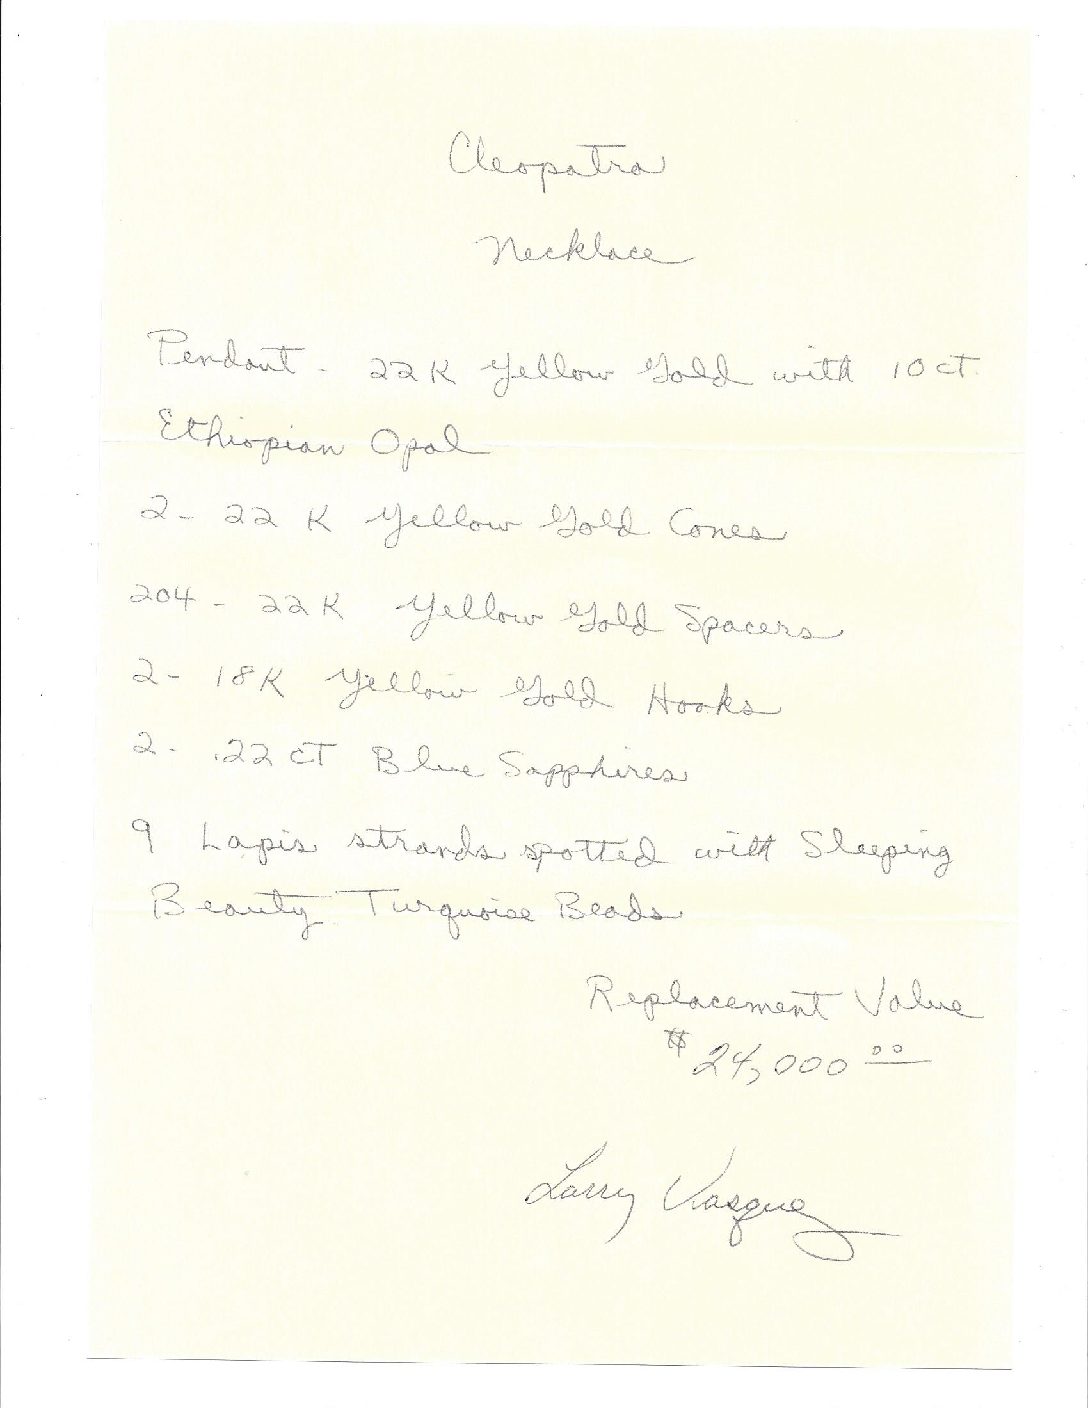 Cleopatra
Necklace
Pendant - 22K Yellow Gold with 10 CT.
Ethiopian Opal
2 - 22 K Yellow Gold Cones
204 - 22K Yellow Gold Spacers
2 - 18K Yellow Gold Hooks
2 - .22 CT Blue Sapphires
9 Lapis strands spotted with Sleeping
Beauty Turquoise Beads
Replacement Value
$24,000.00
Larry Vasquez